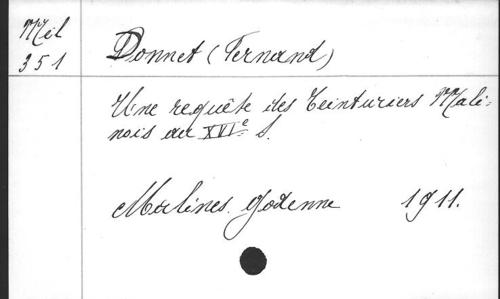 Mél
351
Donnet (Fernand)
Une requête des Teinturiers Mali-
nois au XVIe S.
Malines. Godenne 1911.